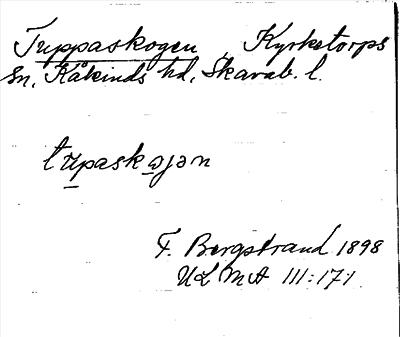 Truppaskogen, Kyrketorps
sn, Kåkinds hd, Skarab. l.
trupaskogən
F. Bergstrand 1898
ULMA III:171